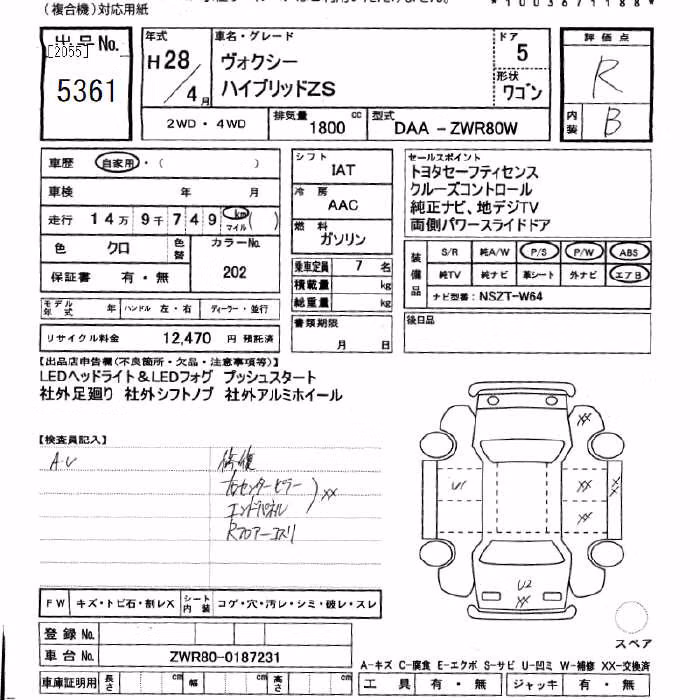 (複合機)対応用紙
*1003671188*
出品No.
[2055]
5361
年式
H28/4月
車名・グレード
ヴォクシー
ハイブリッドZS
ドア
5
形状
ワゴン
評価点
R
内装
B
2WD・4WD
排気量
1800 cc
型式
DAA-ZWR80W
車歴 自家用・( )
車検 年 月
走行 14万9千749 km マイル ( )
色 クロ
色替
カラーNo.
202
保証書 有・無
モデル年式 年 ハンドル 左・右 ディーラー・並行
リサイクル料金 12,470 円 預託済
シフト
IAT
冷房
AAC
燃料
ガソリン
乗車定員 7 名
積載量 kg
総重量 kg
書類期限
月 日
セールスポイント
トヨタセーフティセンス
クルーズコントロール
純正ナビ、地デジTV
両側パワースライドドア
装備品
S/R 純A/W P/S P/W ABS
純TV 純ナビ 革シート 外ナビ エアB
ナビ型番: NSZT-W64
後日品
【出品店申告欄(不良箇所・欠品・注意事項等)】
LEDヘッドライト&LEDフォグ プッシュスタート
社外足廻り 社外シフトノブ 社外アルミホイール
【検査員記入】
A・U
修復
右センターピラー
エンドパネル
XX
Rフロアーヨスリ
XX
U1
XX
XX
XX
U2
XX
スペア
FW キズ・トビ石・割レX シート内装 コゲ・穴・汚レ・シミ・破レ・スレ
登録No.
車台No. ZWR80-0187231
車庫証明用 長さ cm 幅 cm 高さ cm
A-キズ C-腐食 E-エクボ S-サビ U-凹ミ W-補修 XX-交換済
工具 有・無 ジャッキ 有・無